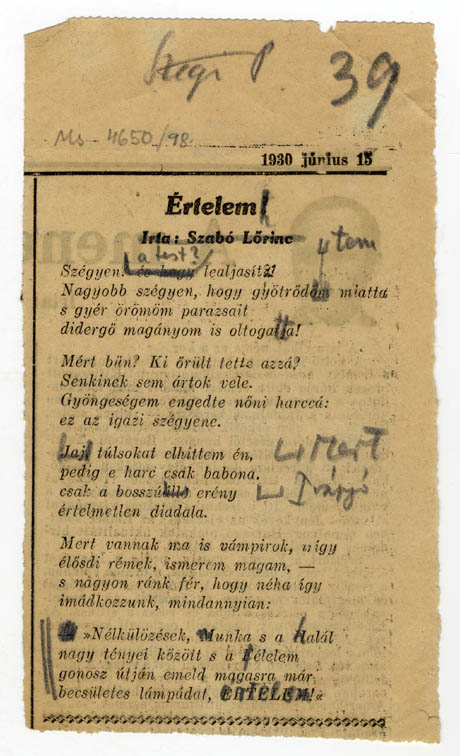 Szegi P
39
Ms 4650/98
1930 június 15
Értelem!
Irta: Szabó Lőrinc
a test?
Szégyen? és hogy lealjasit?
Nagyobb szégyen, hogy gyötrődöm miatta
s gyér örömöm parazsait
didergő magányom is oltogatta!
Mért bün? Ki őrült tette azzá?
Senkinek sem ártok vele.
Gyöngeségem engedte nőni harccá:
ez az igazi szégyene.
Jaj, túlsokat elhittem én,
Mert
pedig e harc csak babona,
csak a bosszúálló erény
értelmetlen diadala.
Mert vannak ma is vámpirok, úgy
élősdi rémek, ismerem magam, —
s nagyon ránk fér, hogy néha így
imádkozzunk, mindannyian:
»Nélkülözések, Munka s a Halál
nagy tényei között s a Félelem
gonosz útján emeld magasra már
becsületes lámpádat, ÉRTELEM!«